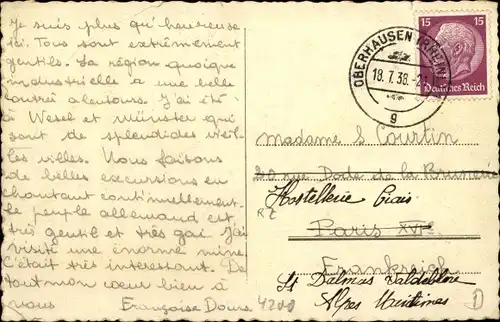 Je suis plus qu'heureuse
ici. Tous sont extrêmement
gentils. La région quoique
industrielle a une belle
contrée alentours. J'ai été
à Wesel et Münster qui
sont de splendides vieil-
les villes. Nous faisons
de belles excursions en
chantant continuellement.
Le peuple allemand est
très gentil et très gai. J'ai
visité une énorme mine.
C'était très interessant. De
tout mon cœur bien à
vous Françoise
4200
OBERHAUSEN (RHEINL)
18.7.38.-21
g
15 15
Deutsches Reich
Madame S Courtin
20 rue Dode de la Brunerie
Hostellerie
Paris XVIe
Frankreich
St Dalmas Valdeblore
Alpes Maritimes
D